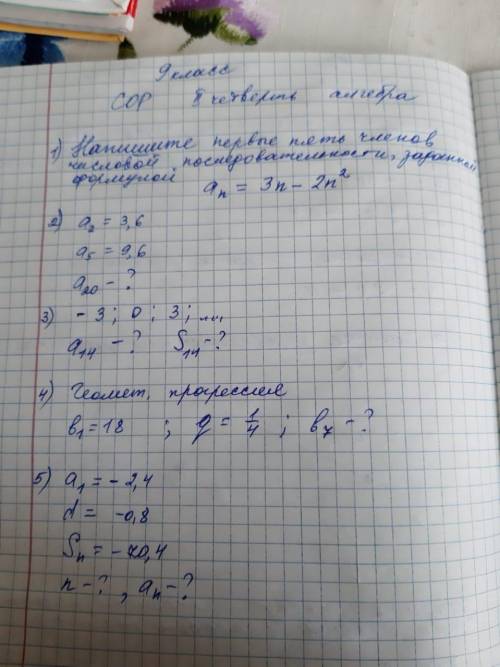 9 класс
СОР II четверть алгебра
1) Напишите первые пять членов
числовой последовательности, заданной
формулой
aₙ = 3n - 2n²
2) a₂ = 3,6
a₅ = 9,6
a₂₀ - ?
3) -3; 0; 3; ...
a₁₄ - ? S₁₄ - ?
4) Геомет. прогрессия
b₁ = 18 ; q = 1/4 ; b₇ - ?
5) a₁ = -2,4
d = -0,8
Sₙ = -70,4
n - ?, aₙ - ?